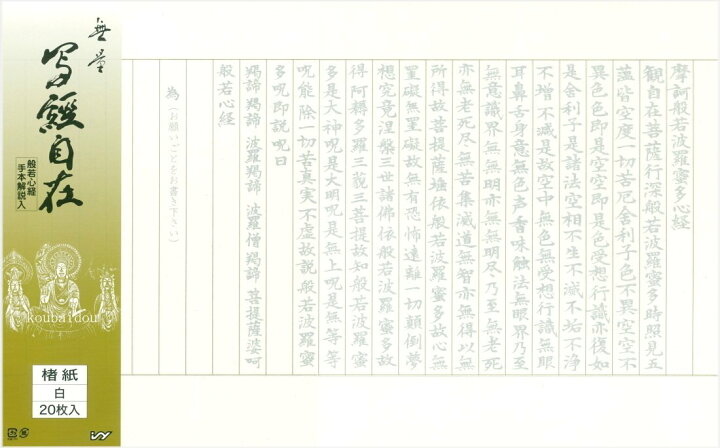 無量
写經自在
般若心経
手本解説入
koubaidou
楮紙
白
20枚入
摩訶般若波羅蜜多心経
観自在菩薩行深般若波羅蜜多時照見五
蘊皆空度一切苦厄舎利子色不異空空不
異色色即是空空即是色受想行識亦復如
是舎利子是諸法空相不生不滅不垢不浄
不増不減是故空中無色無受想行識無眼
耳鼻舌身意無色声香味触法無眼界乃至
無意識界無無明亦無無明尽乃至無老死
亦無老死尽無苦集滅道無智亦無得以無
所得故菩提薩埵依般若波羅蜜多故心無
罣礙無罣礙故無有恐怖遠離一切顛倒夢
想究竟涅槃三世諸佛依般若波羅蜜多故
得阿耨多羅三藐三菩提故知般若波羅蜜
多是大神呪是大明呪是無上呪是無等等
呪能除一切苦真実不虚故説般若波羅蜜
多呪即説呪曰
羯諦 羯諦 波羅羯諦 波羅僧羯諦 菩提薩婆呵
般若心経
為(お願いごとをお書き下さい)